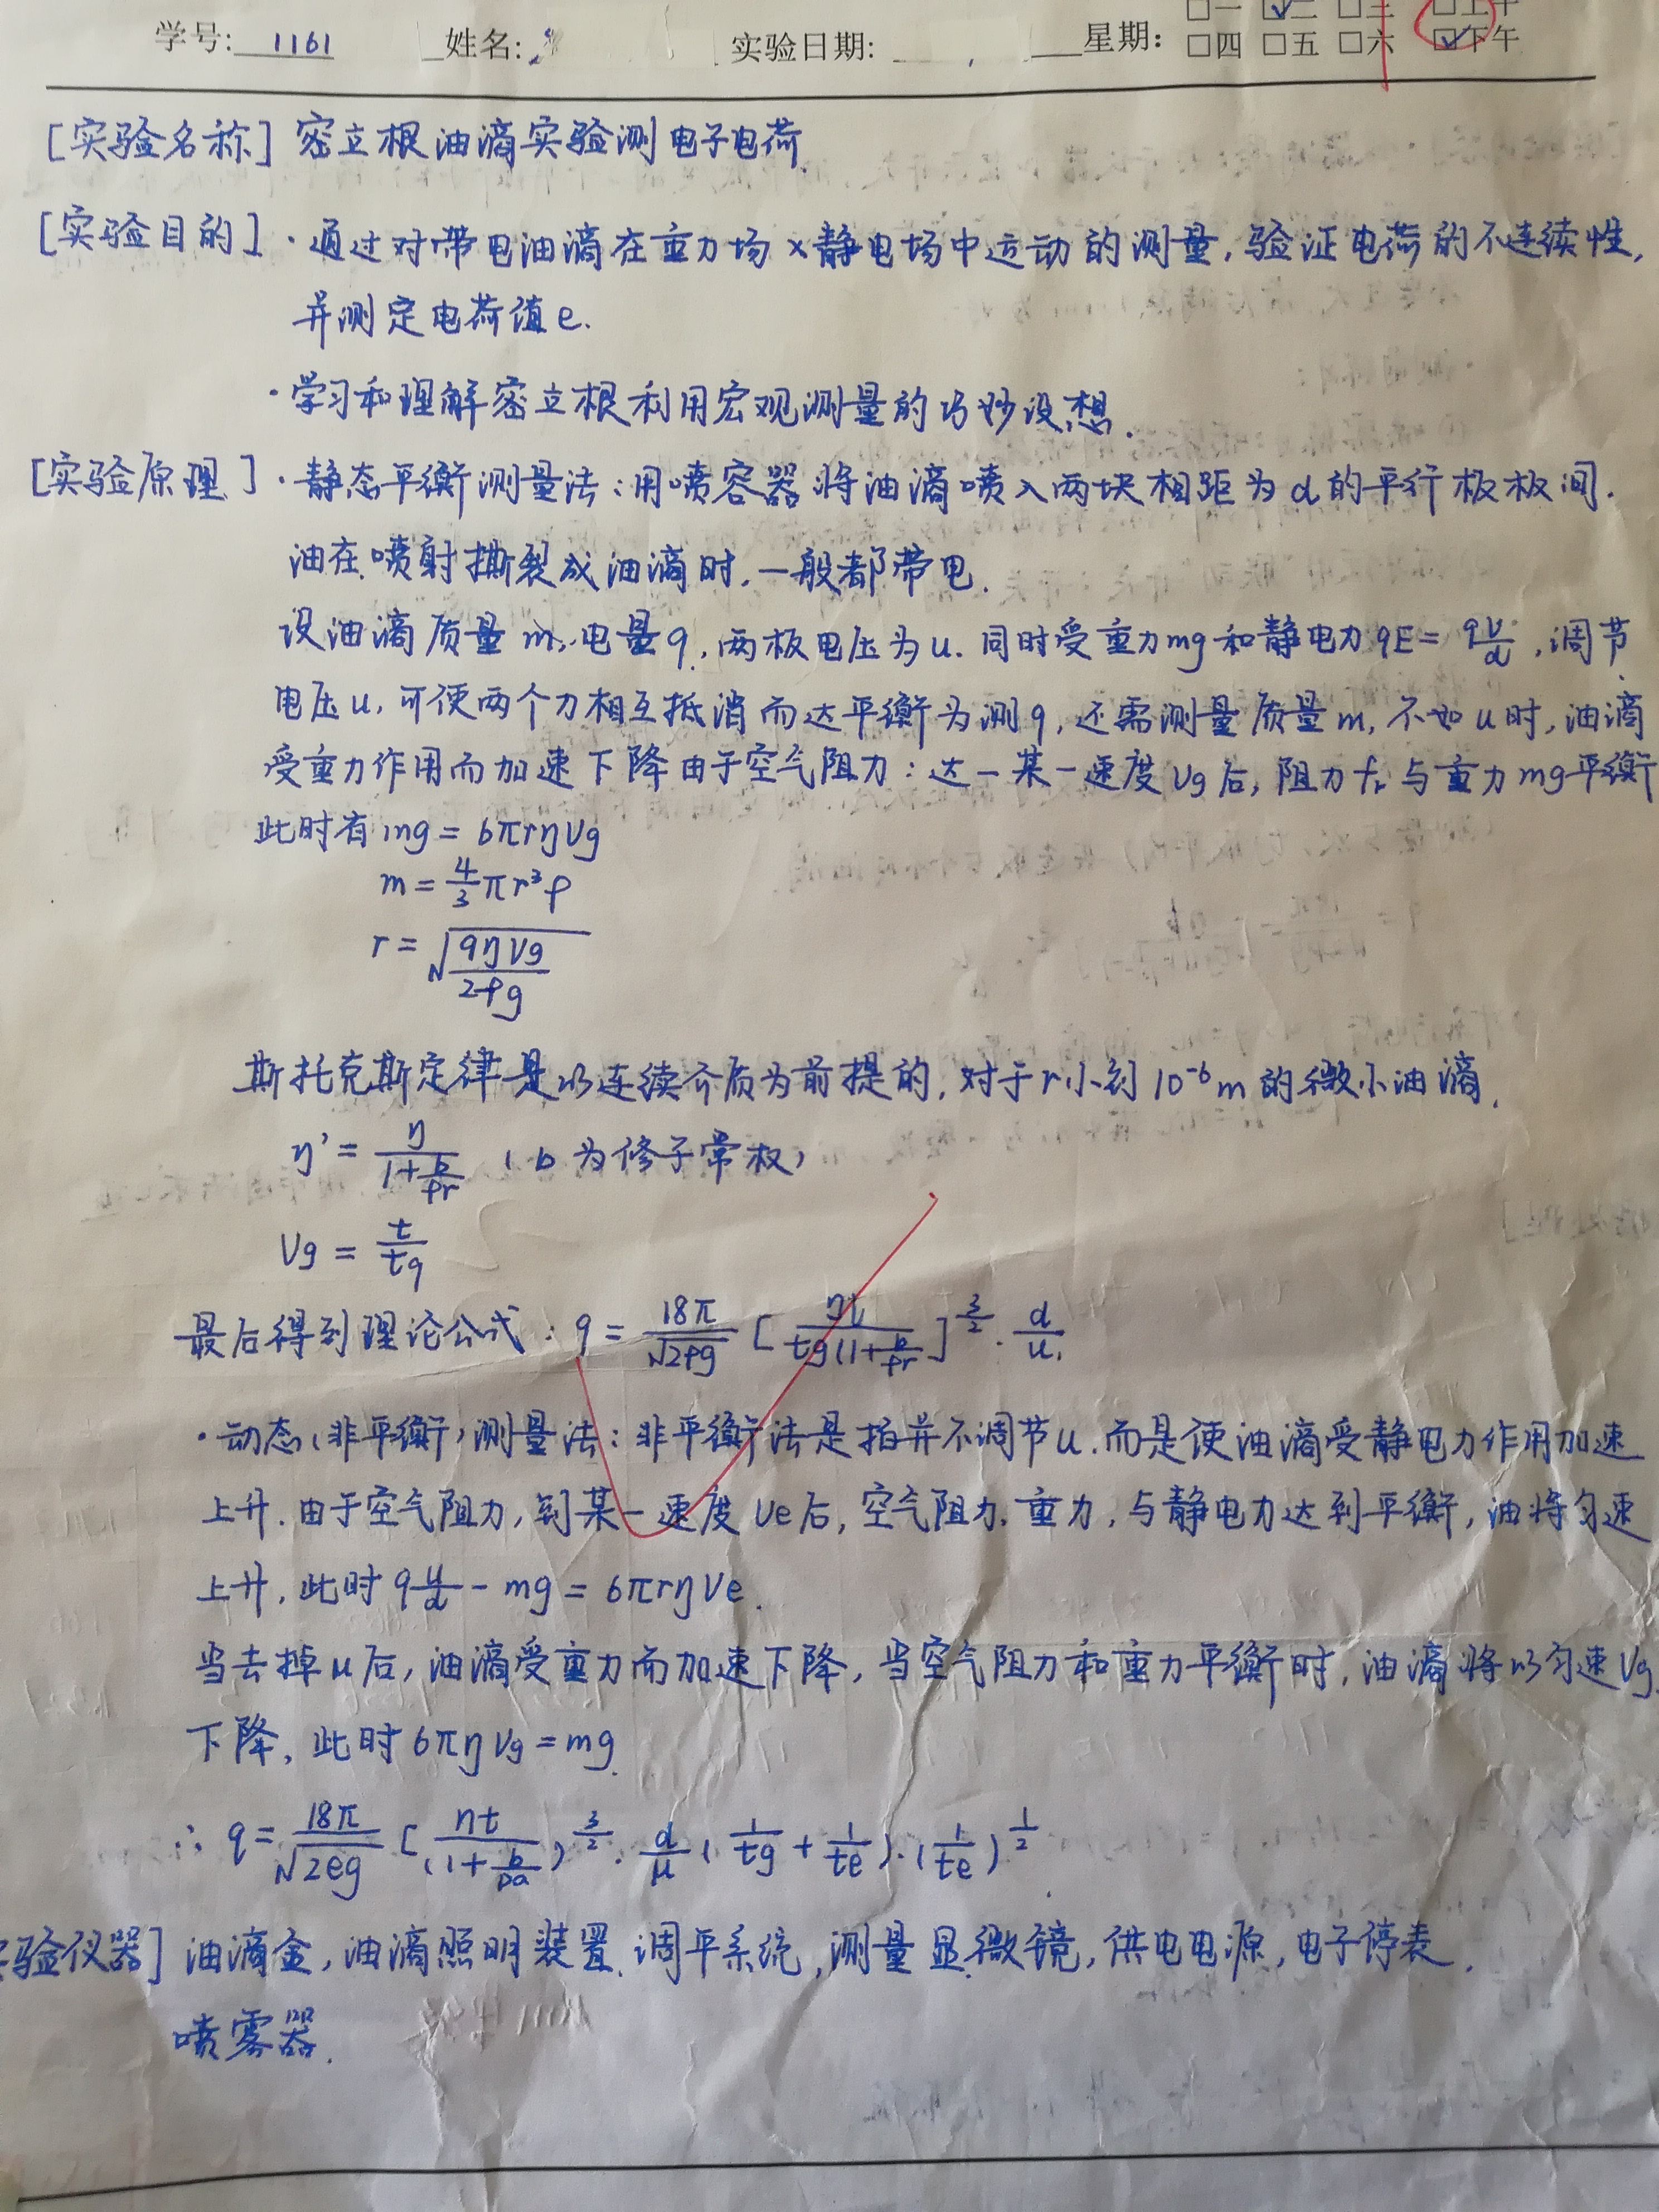 学号: 1161 姓名: 实验日期: 星期: □一 ☑二 □三 □上午
□四 □五 □六 ☑下午
[实验名称] 密立根油滴实验测电子电荷.
[实验目的] ·通过对带电油滴在重力场x静电场中运动的测量,验证电荷的不连续性,
并测定电荷值e.
·学习和理解密立根利用宏观测量的巧妙设想.
[实验原理] ·静态平衡测量法:用喷容器将油滴喷入两块相距为d的平行板板间.
油在喷射撕裂成油滴时,一般都带电.
设油滴质量m,电量q,两板电压为u.同时受重力mg和静电力qE=q\frac{U}{d},调节
电压u,可使两个力相互抵消而达平衡为测q,还需测量质量m,不如u时,油滴
受重力作用而加速下降由于空气阻力:达一某一速度Vg后,阻力fr与重力mg平衡
此时有mg=6πrηVg
m=\frac{4}{3}πr³ρ
r=\sqrt{\frac{9ηVg}{2ρg}}
斯托克斯定律是以连续介质为前提的,对于r小到10⁻⁶m的微小油滴,
η'=\frac{η}{1+\frac{b}{pr}} (b为修子常权)
Vg=\frac{t}{tg}
最后得到理论公式:q=\frac{18π}{\sqrt{2ρg}}[\frac{ηl}{tg(1+\frac{b}{pr})}]^{\frac{3}{2}}·\frac{d}{u}.
·动态(非平衡)测量法:非平衡法是指并不调节u.而是使油滴受静电力作用加速
上升.由于空气阻力,到某一速度Ve后,空气阻力.重力,与静电力达到平衡,油将匀速
上升,此时q\frac{u}{d}-mg=6πrηVe.
当去掉u后,油滴受重力而加速下降,当空气阻力和重力平衡时,油滴将以匀速Vg
下降,此时6πηVg=mg.
∴q=\frac{18π}{\sqrt{2eg}}[\frac{ηt}{(1+\frac{b}{pa}})^{\frac{3}{2}}·\frac{d}{μ}(\frac{1}{tg}+\frac{1}{te})·(\frac{1}{te})^{\frac{1}{2}}.
验仪器] 油滴盒,油滴照明装置.调平系统,测量显微镜,供电电源,电子停表,
喷雾器.